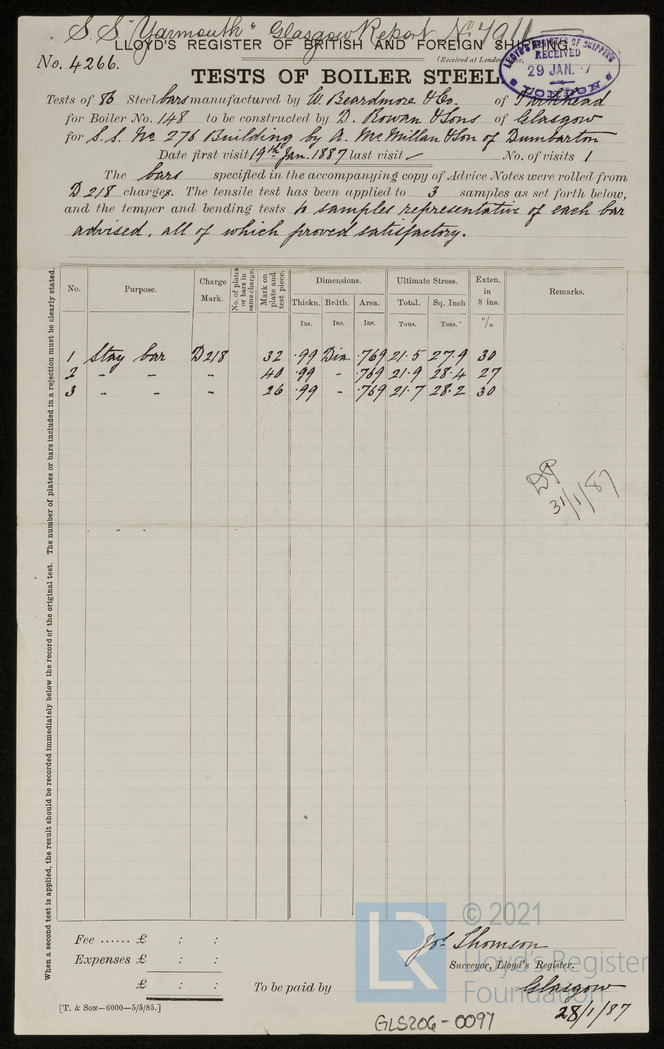 S.S. "Yarmouth" Glasgow Report No.
LLOYD'S REGISTER OF BRITISH AND FOREIGN SHIPPING.
No. 4266.
(Received at London
LLOYD'S REGISTER OF SHIPPING
RECEIVED
29 JAN. 87
LONDON
TESTS OF BOILER STEEL.
Tests of 86 Steel bars manufactured by W. Beardmore & Co. of Parkhead
for Boiler No. 148 to be constructed by D. Rowan & Sons of Glasgow
for S.S. No 276 Building by A. McMillan & Son of Dumbarton
Date first visit 19th Jan. 1887 last visit No. of visits 1
The bars specified in the accompanying copy of Advice Notes were rolled from
D 218 charges. The tensile test has been applied to 3 samples as set forth below,
and the temper and bending tests to samples representative of each bar
advised, all of which proved satisfactory.
When a second test is applied, the result should be recorded immediately below the record of the original test. The number of plates or bars included in a rejection must be clearly stated.
No. Purpose. Charge Mark. No. of plates or bars in same charge. Mark on plate and test piece. Dimensions. Ultimate Stress. Exten. in 8 ins. Remarks.
Thickn. Brdth. Area. Total. Sq. Inch
Ins. Ins. Ins. Tons. Tons. %
1 Stay bar D 218 32 .99 Dia .769 21.5 27.9 30
2 - - - 40 .99 - .769 21.9 28.4 27
3 - - - 26 .99 - .769 21.7 28.2 30
31/1/87
- - -
Fee ...... £ : :
Expenses £ : :
£ : :
To be paid by
Jos. Thomson
Surveyor, Lloyd's Register.
Glasgow
28/1/87
[T. & SON—6000—5/5/85.]
GLS206-0097
LR © 2021
Lloyd's Register
Foundation